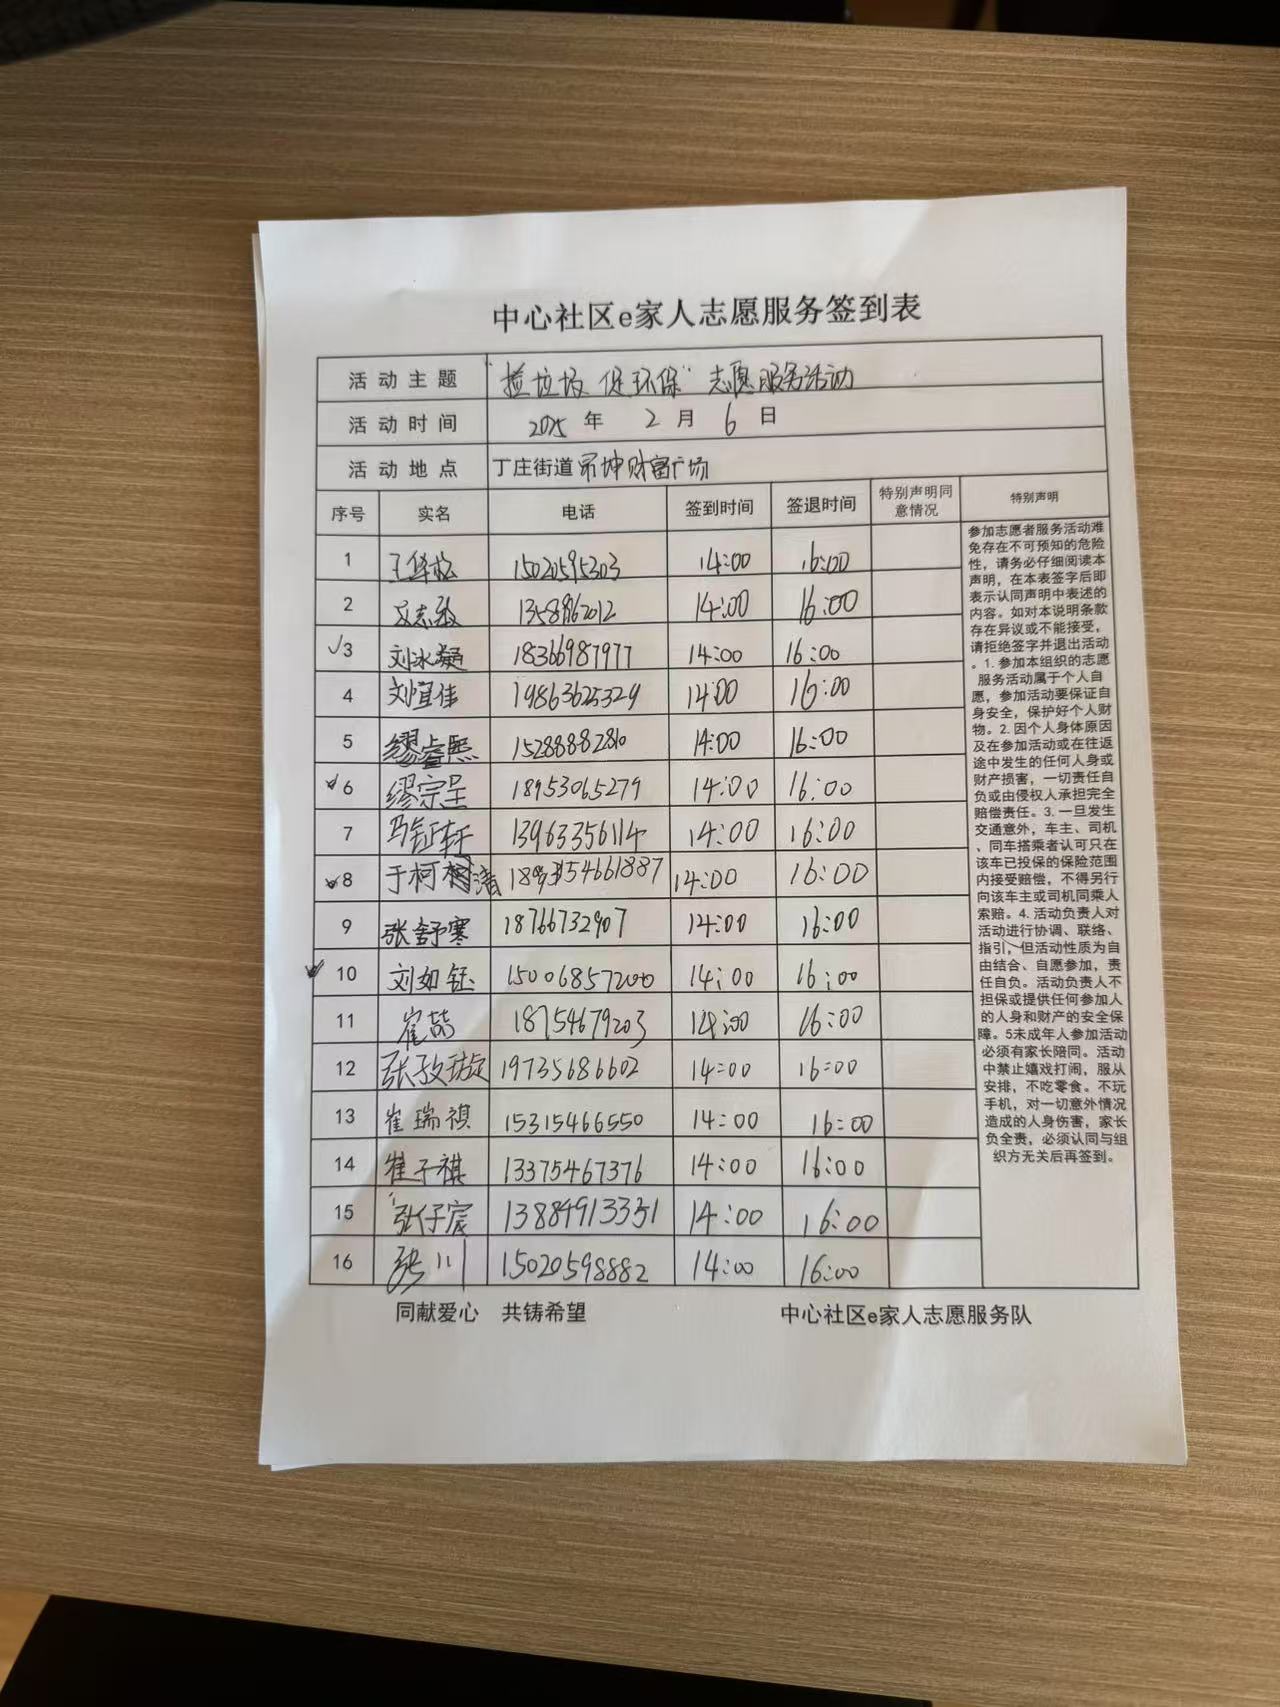 中心社区e家人志愿服务签到表
活动主题 "捡垃圾 促环保" 志愿服务活动
活动时间 2025 年 2 月 6 日
活动地点 丁庄街道 坤财富广场
序号 实名 电话 签到时间 签退时间 特别声明同意情况 特别声明
1 王 松 15020595303 14:00 16:00
2 志 14:00 16:00
√3 刘冰凝 18366987977 14:00 16:00
4 刘宜佳 19863625329 14:00 16:00
5 缪睿熙 15288882810 14:00 16:00
√6 缪宗呈 18953065279 14:00 16:00
7 马钲轩 13963356114 14:00 16:00
√8 于柯 清 14:00 16:00
9 张舒寒 18766732907 14:00 16:00
√10 刘如钰 14:00 16:00
11 崔喆 18754679203 14:00 16:00
12 张 琔 19735686602 14:00 16:00
13 崔瑞祺 15315466550 14:00 16:00
14 崔子祺 13375467376 14:00 16:00
15 张仔宸 13884913351 14:00 16:00
16 张川 15020598882 14:00 16:00
参加志愿者服务活动难
免存在不可预知的危险
性，请务必仔细阅读本
声明，在本表签字后即
表示认同声明中表述的
内容。如对本说明条款
存在异议或不能接受，
请拒绝签字并退出活动
。1.参加本组织的志愿
服务活动属于个人自
愿，参加活动要保证自
身安全，保护好个人财
物。2.因个人身体原因
及在参加活动或在往返
途中发生的任何人身或
财产损害，一切责任自
负或由侵权人承担完全
赔偿责任。3.一旦发生
交通意外，车主、司机
、同车搭乘者认可只在
该车已投保的保险范围
内接受赔偿，不得另行
向该车主或司机同乘人
索赔。4.活动负责人对
活动进行协调、联络、
指引、但活动性质为自
由结合、自愿参加，责
任自负。活动负责人不
担保或提供任何参加人
的人身和财产的安全保
障。5未成年人参加活动
必须有家长陪同。活动
中禁止嬉戏打闹，服从
安排，不吃零食。不玩
手机，对一切意外情况
造成的人身伤害，家长
负全责，必须认同与组
织方无关后再签到。
同献爱心 共铸希望 中心社区e家人志愿服务队